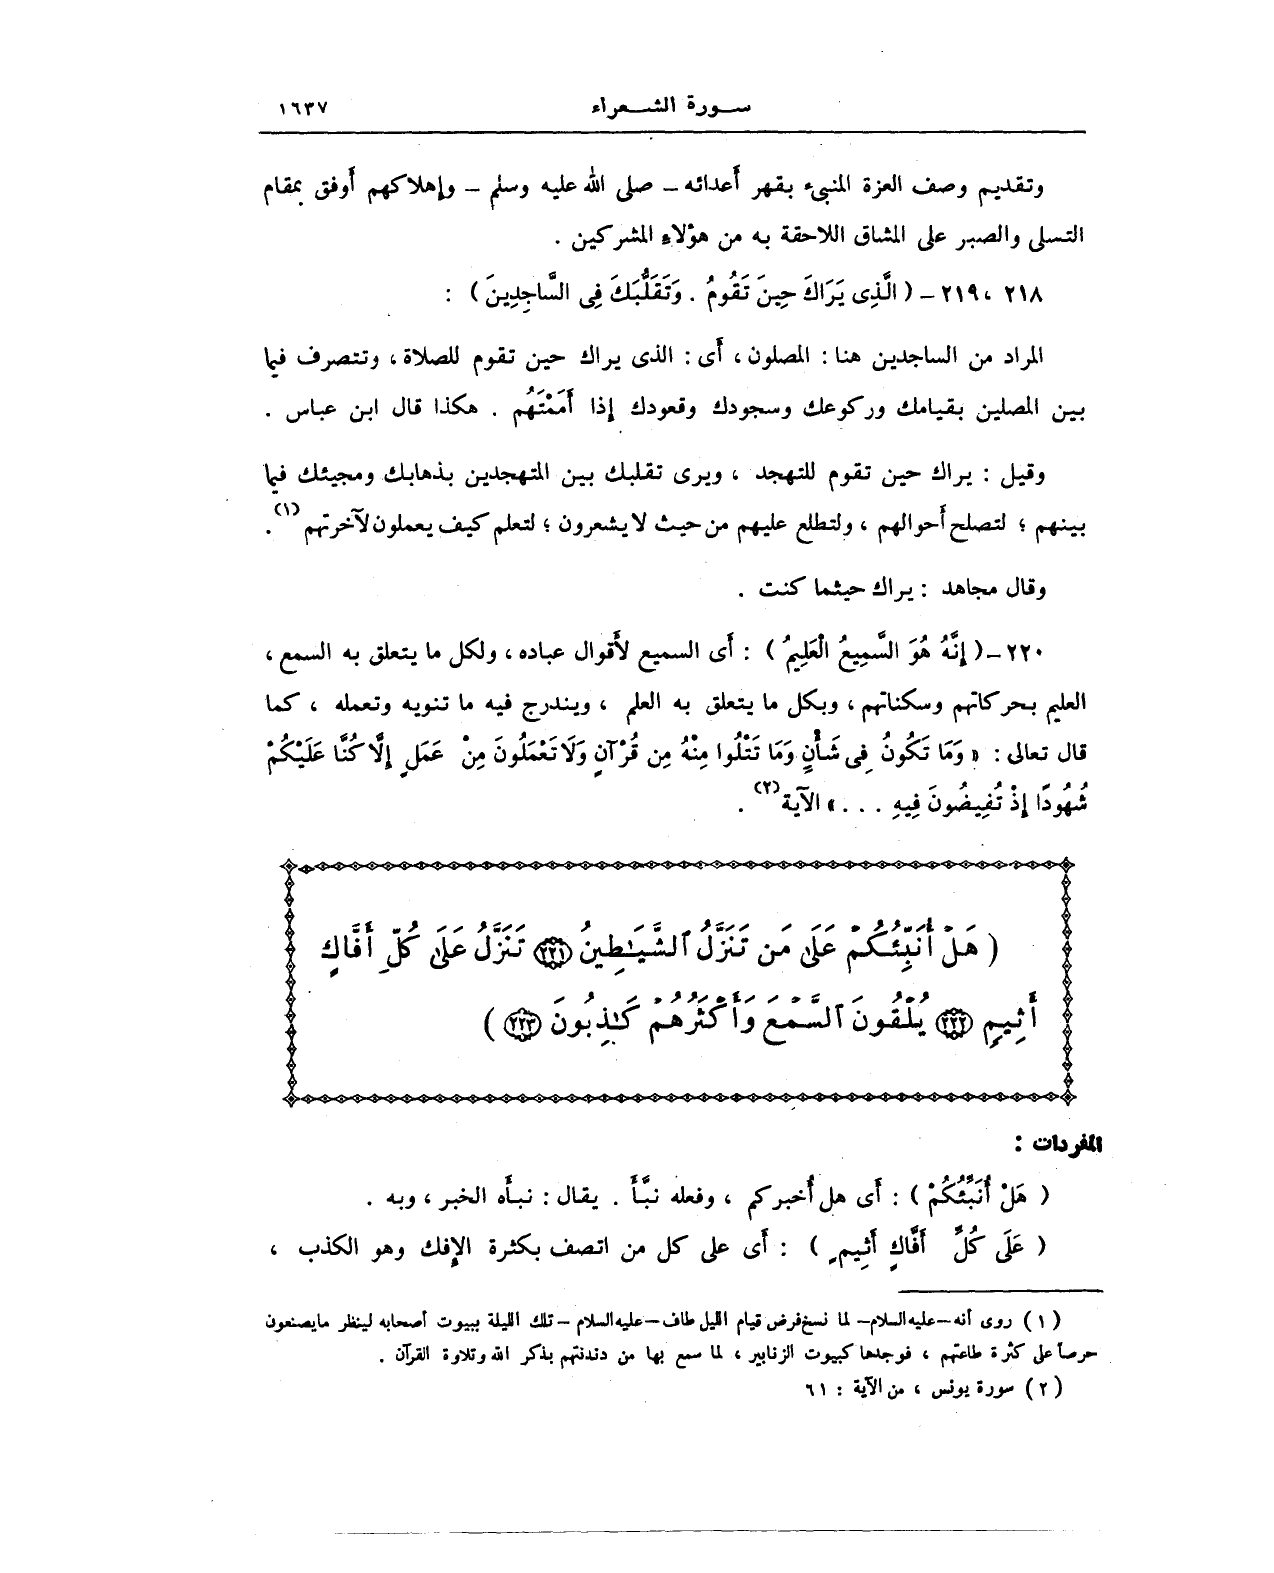 سورة الشعراء ١٦٣٧
وتقديم وصف العزة المنبىء بقهر أعدائه – صلى الله عليه وسلم – وإهلاكهم أوفق بمقام
التسلى والصبر على المشاق اللاحقة به من هؤلاء المشركين .
٢١٨ ، ٢١٩ – ( الَّذِى يَرَاكَ حِينَ تَقُومُ . وَتَقَلُّبَكَ فِى السَّاجِدِينَ ) :
المراد من الساجدين هنا : المصلون ، أى : الذى يراك حين تقوم للصلاة ، وتتصرف فيما
بين المصلين بقيامك وركوعك وسجودك وقعودك إذا أَمَمْتَهُم . هكذا قال ابن عباس .
وقيل : يراك حين تقوم للتهجد ، ويرى تقلبك بين المتهجدين بذهابك ومجيئك فيما
بينهم ؛ لتصلح أحوالهم ، ولتطلع عليهم من حيث لا يشعرون ؛ لتعلم كيف يعملون لآخرتهم (١) .
وقال مجاهد : يراك حيثما كنت .
٢٢٠ – ( إِنَّهُ هُوَ السَّمِيعُ الْعَلِيمُ ) : أى السميع لأقوال عباده ، ولكل ما يتعلق به السمع ،
العليم بحركاتهم وسكناتهم ، وبكل ما يتعلق به العلم ، ويندرج فيه ما تنويه وتعمله ، كما
قال تعالى : « وَمَا تَكُونُ فِى شَأْنٍ وَمَا تَتْلُوا مِنْهُ مِن قُرْآنٍ وَلَا تَعْمَلُونَ مِنْ عَمَلٍ إِلَّا كُنَّا عَلَيْكُمْ
شُهُودًا إِذْ تُفِيضُونَ فِيهِ . . . » الآية (٢) .
( هَلْ أُنَبِّئُكُمْ عَلَىٰ مَن تَنَزَّلُ ٱلشَّيَـٰطِينُ ٢٢١ تَنَزَّلُ عَلَىٰ كُلِّ أَفَّاكٍ
أَثِيمٍ ٢٢٢ يُلْقُونَ ٱلسَّمْعَ وَأَكْثَرُهُمْ كَـٰذِبُونَ ٢٢٣ )
المفردات :
( هَلْ أُنَبِّئُكُمْ ) : أى هل أُخبركم ، وفعله نبَّأَ . يقال : نبأه الخبر ، وبه .
( عَلَى كُلِّ أَفَّاكٍ أَثِيمٍ ) : أى على كل من اتصف بكثرة الإفك وهو الكذب ،
( ١ ) روى أنه –عليه السلام– لما نسخ فرض قيام الليل طاف –عليه السلام – تلك الليلة ببيوت أصحابه لينظر مايصنعون
حرصاً على كثرة طاعتهم ، فوجدها كبيوت الزنابير ، لما سمع بها من دندنتهم بذكر الله وتلاوة القرآن .
( ٢ ) سورة يونس ، من الآية : ٦١